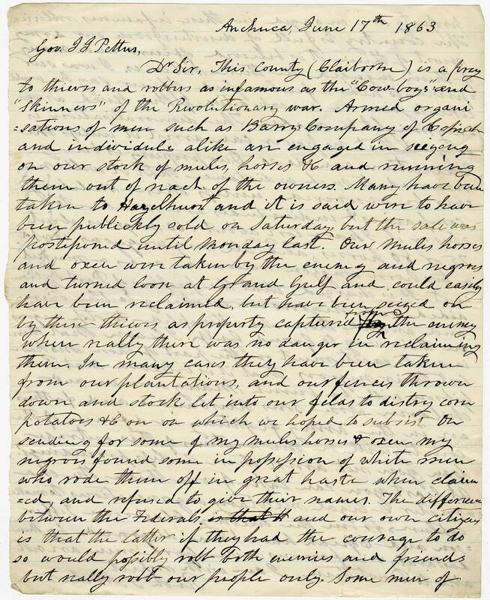 Anchuca, June 17th 1863
Gov. J J Pettus,
Dr Sir, This County (Claiborne) is a prey
to thieves and robbers as infamous as the "Cow boys" and
"Skinners" of the Revolutionary war. Armed organi
=sations of men such as Barrys Company of Copiah
and individuals alike are engaged in seizing
on our stock of mules, horses &c and running
them out of reach of the owners. Many have been
taken to Hazelhurst and it is said were to have
been publickly sold on Saturday, but the sale was
postponed until Monday last. Our mules horses
and oxen were taken by the enemy and negroes
and turned loose at Grand Gulf and could easily
have been reclaimed, but have been seized on
by these thieves as property captured from the enemy
when really there was no danger in reclaiming
them. In many cases they have been taken
from our plantations, and our fences thrown
down and stock let into our fields to distroy corn
potatoes &c on which we hoped to subsist. On
sending for some of my mules horses & oxen my
negroes found some in possession of white men
who rode them off in great haste when claim
=ed, and refused to give their names. The difference
between the Federals, is that it and our own citizens
is that the latter if they had the courage to do
so would possibly rob both enemies and friends
but really rob our people only. Some men of